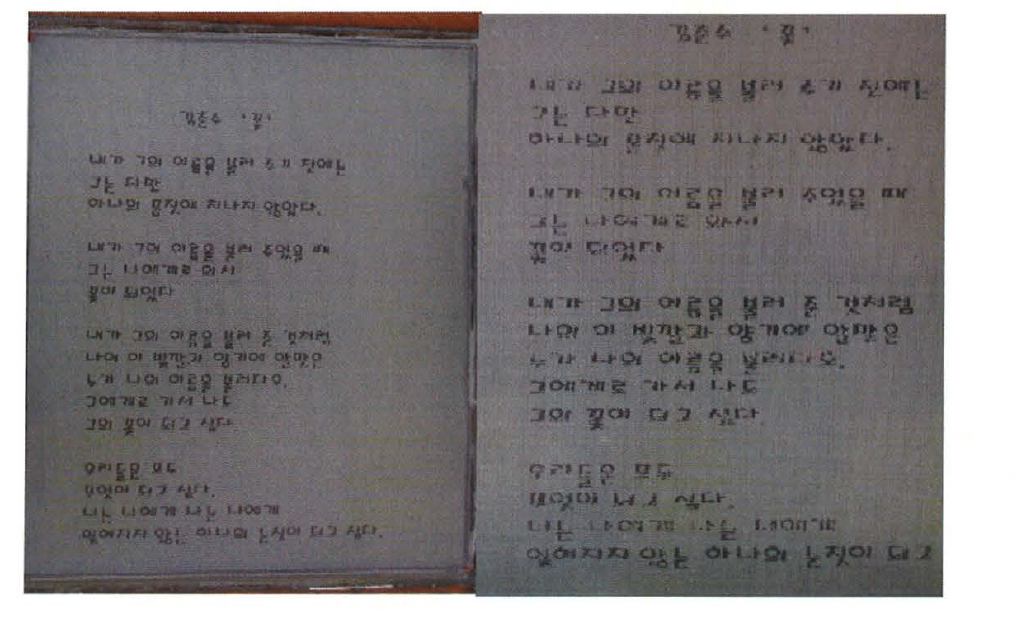 김춘수 , 꽃,
내가 그의 이름을 불러 주기 전에는
그는 다만
하나의 몸짓에 지나지 않았다.
내가 그의 이름을 불러 주었을 때
그는 나에게로 와서
꽃이 되었다
내가 그의 이름을 불러 준 것처럼
나의 이 빛깔과 향기에 알맞은
누가 나의 이름을 불러다오.
그에게로 가서 나도
그의 꽃이 되고 싶다
우리들은 모두
무엇이 되고 싶다.
나는 너에게 너는 나에게
잊혀지지 않는 하나의 눈짓이 되고 싶다.
김춘수 , 꽃,
내가 그의 이름을 불러 주기 전에는
그는 다만
하나의 몸짓에 지나지 않았다.
내가 그의 이름을 불러 주었을 때
그는 나에게로 와서
꽃이 되었다
내가 그의 이름을 불러 준 것처럼
나의 이 빛깔과 향기에 알맞은
누가 나의 이름을 불러다오.
그에게로 가서 나도
그의 꽃이 되고 싶다
우리들은 모두
무엇이 되고 싶다.
나는 너에게 너는 나에게
잊혀지지 않는 하나의 눈짓이 되고